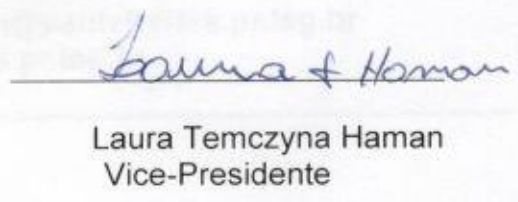 Haman
Laura Temczyna Haman
Vice-Presidente